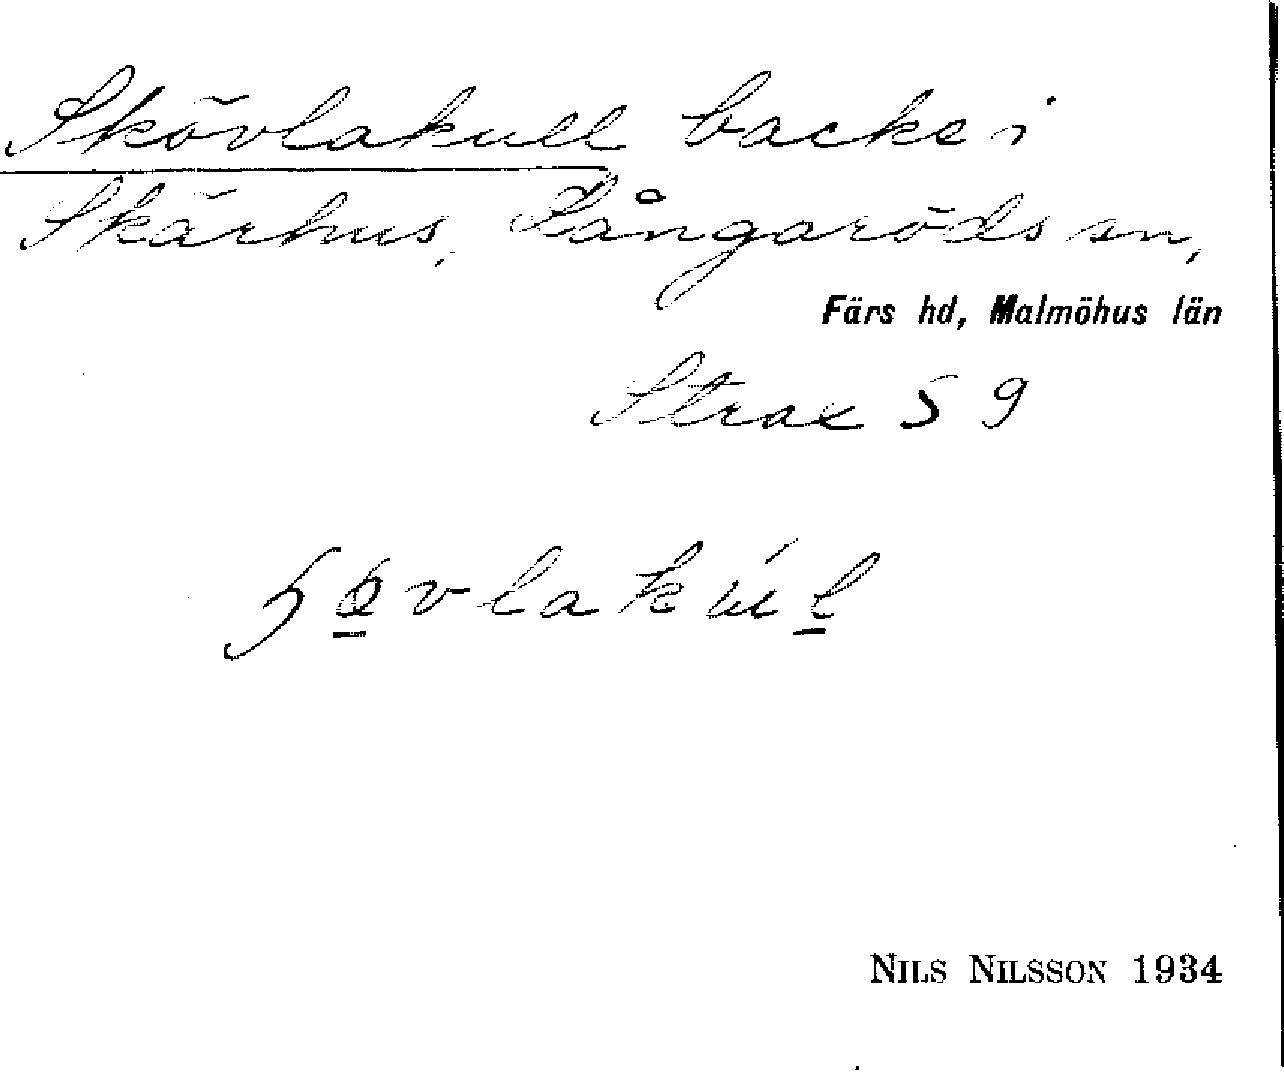 Skövlakull backe i
Skärhus, Långaröds sn,
Färs hd, Malmöhus län
Strax S 9
NILS NILSSON 1934